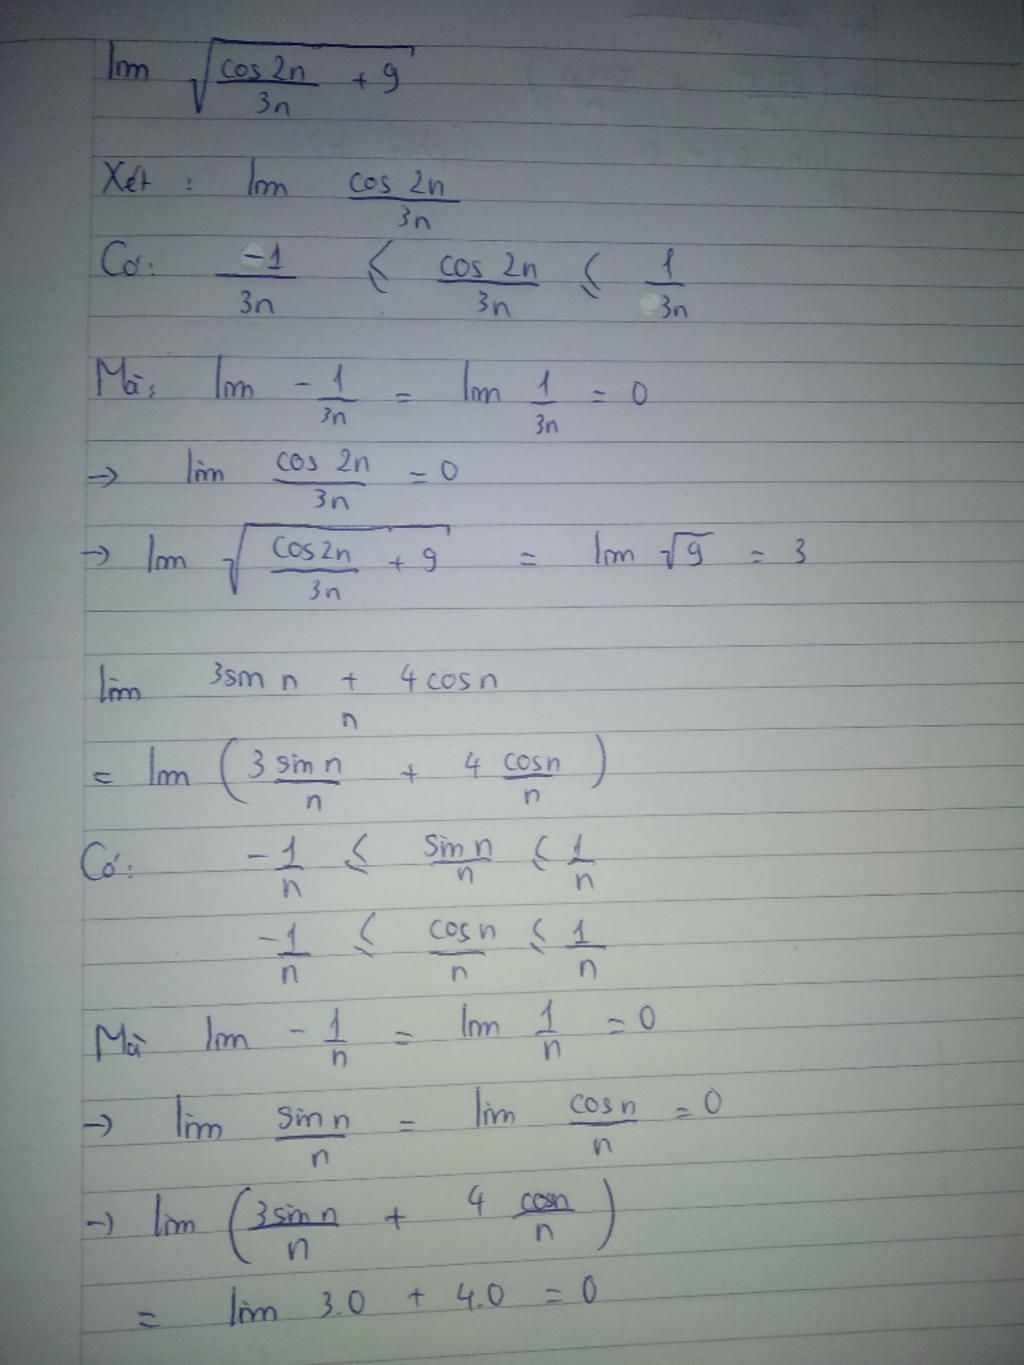 lim √(cos 2n / 3n + 9)
Xét : lim cos 2n / 3n
Có: -1 / 3n ≤ cos 2n / 3n ≤ 1 / 3n
Mà: lim - 1 / 3n = lim 1 / 3n = 0
→ lim cos 2n / 3n = 0
→ lim √(cos 2n / 3n + 9) = lim √9 = 3
lim 3 sin n + 4 cos n / n
= lim (3 sin n / n + 4 cos n / n)
Có: - 1 / n ≤ sin n / n ≤ 1 / n
-1 / n ≤ cos n / n ≤ 1 / n
Mà lim - 1 / n = lim 1 / n = 0
→ lim sin n / n = lim cos n / n = 0
→ lim (3 sin n / n + 4 cos n / n)
= lim 3.0 + 4.0 = 0